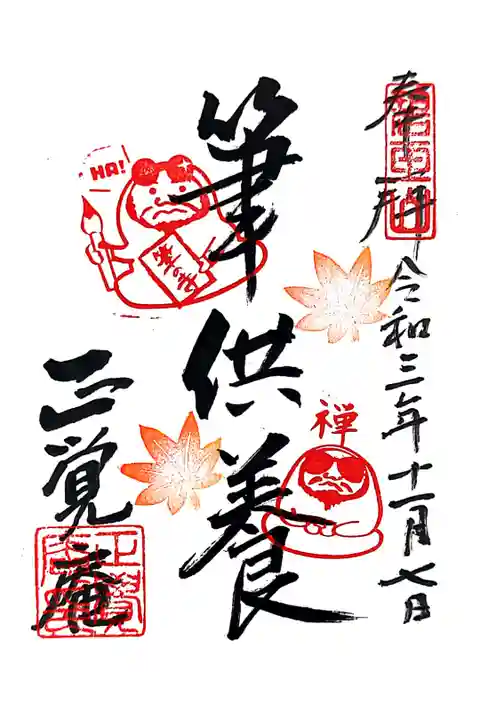 奉拝 令和三年十一月七日
筆供養
HA!
禅
正覚庵